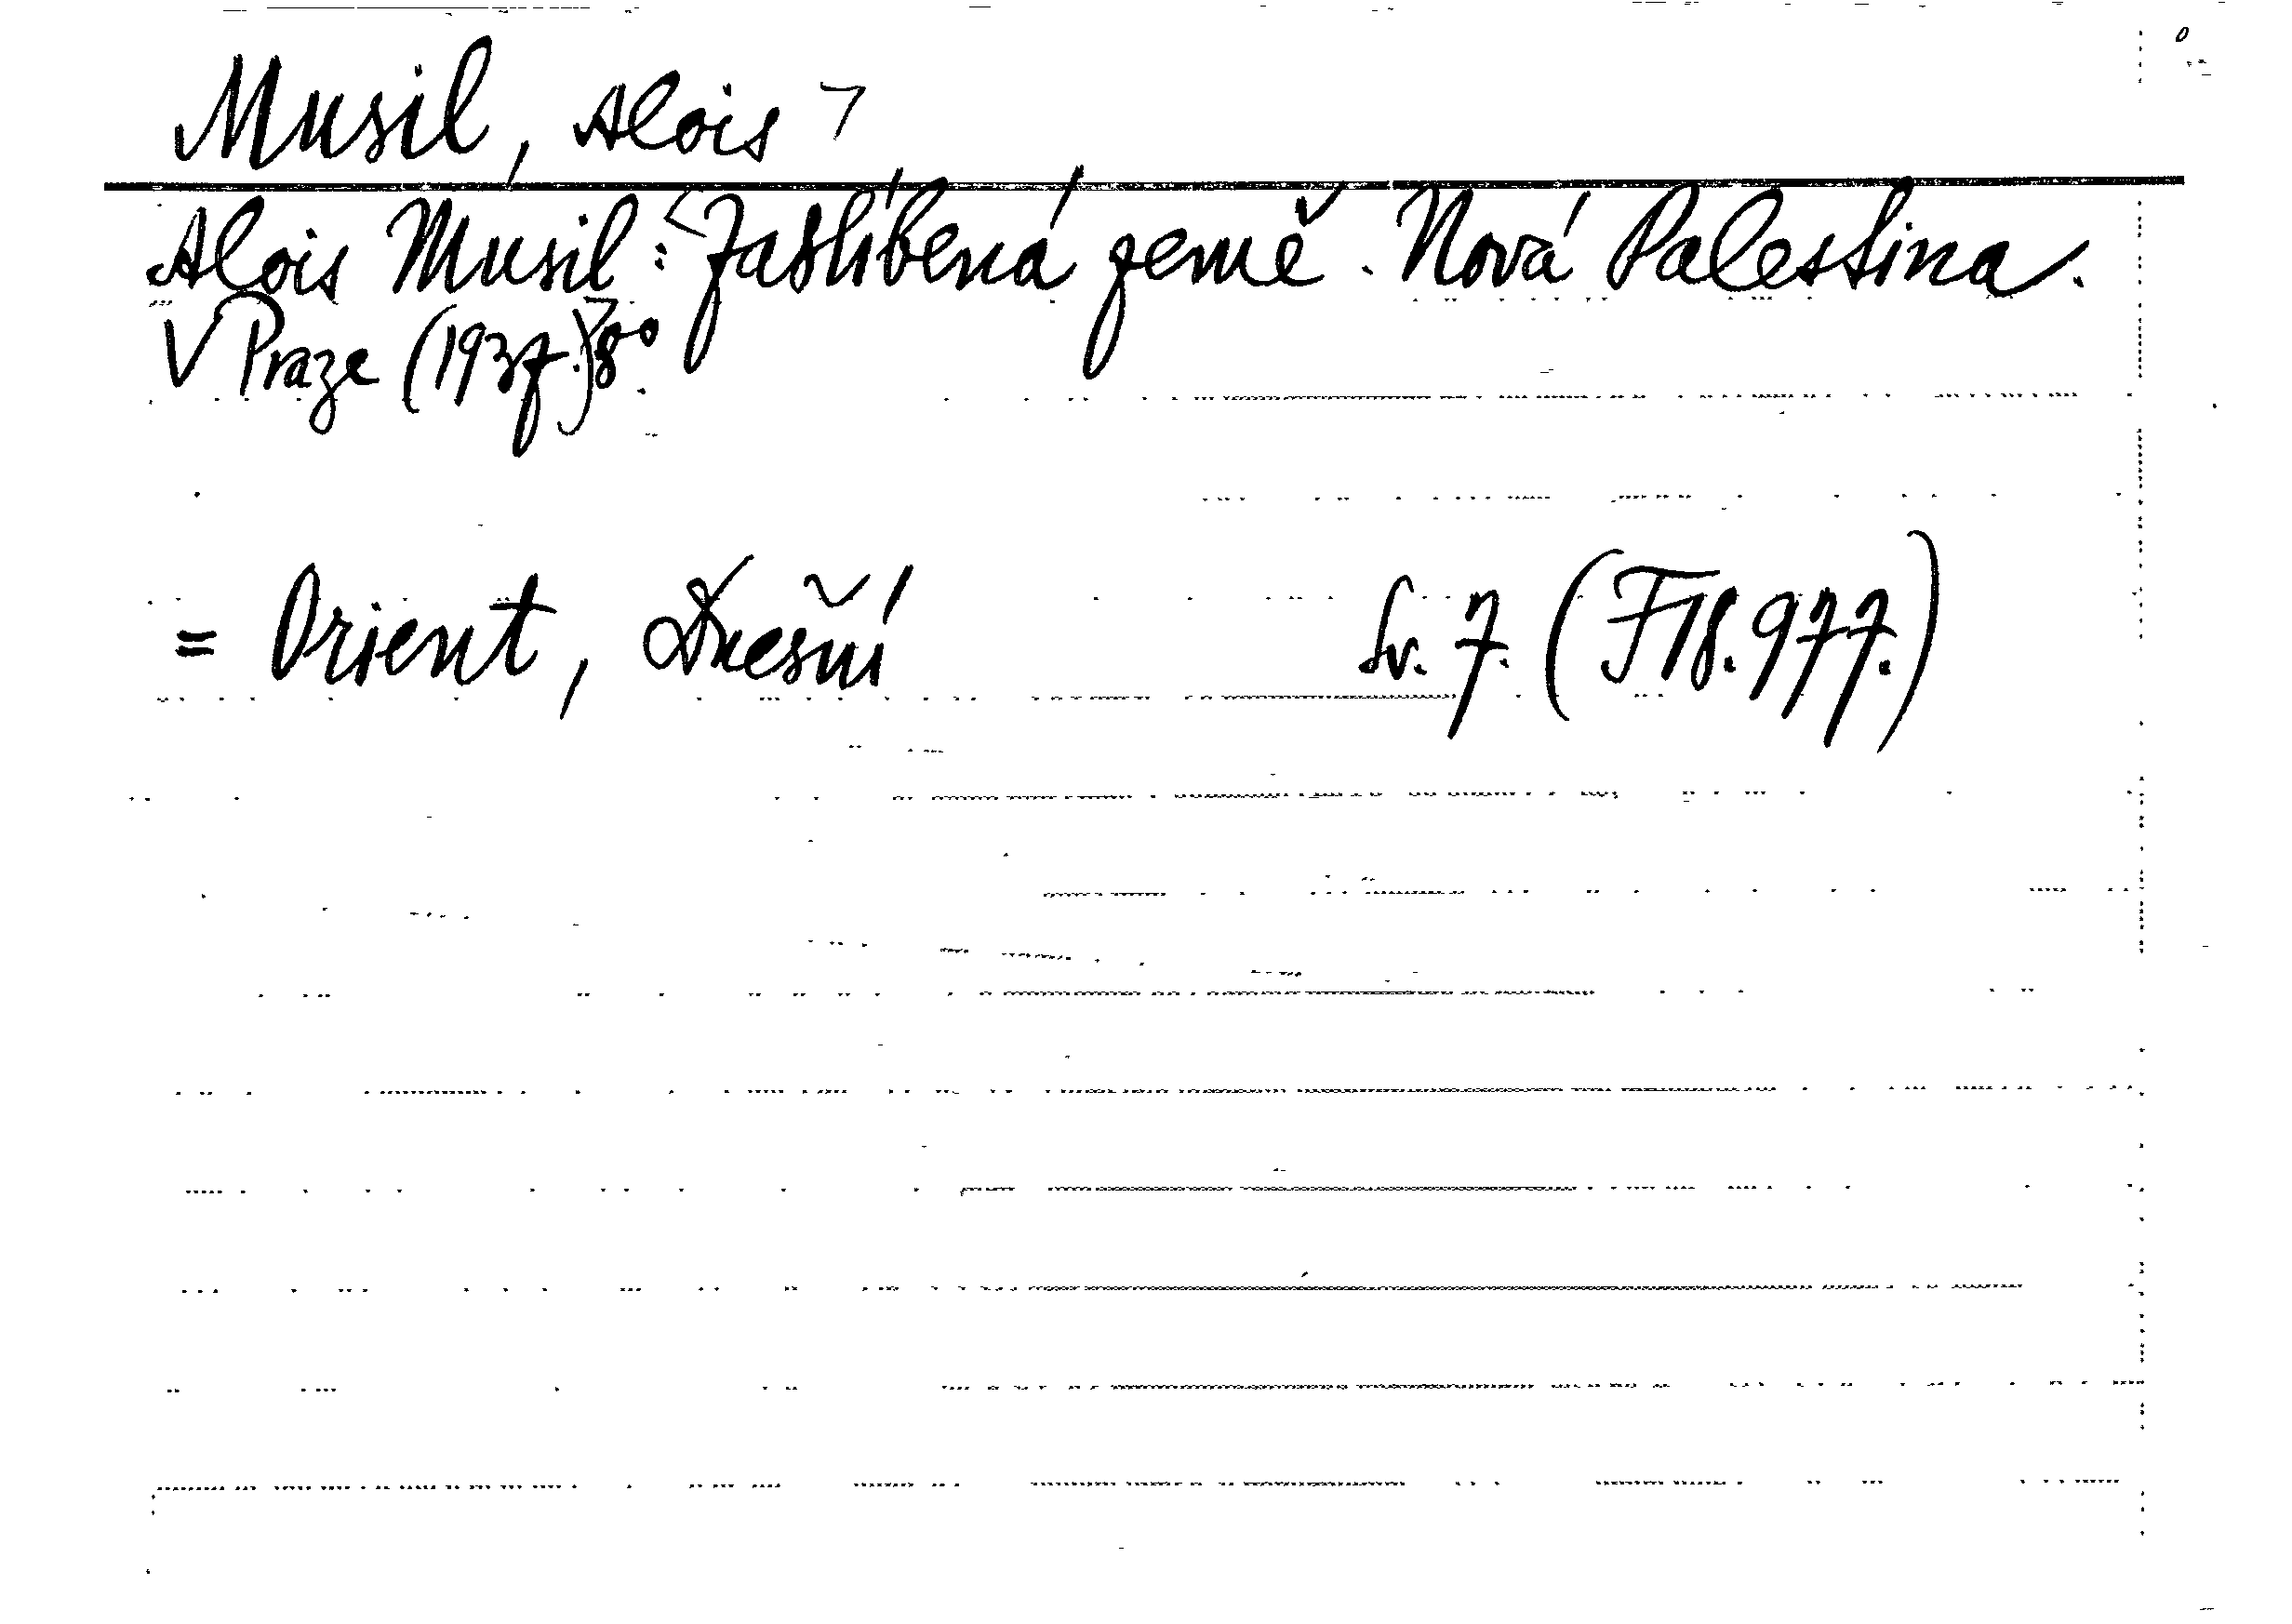 Musil, Alois
Alois Musil: Zaslíbená země. Nová Palestina.
V Praze (1937.) 8°.
= Orient, Dnešní Sv. 7. (F 18.977.)